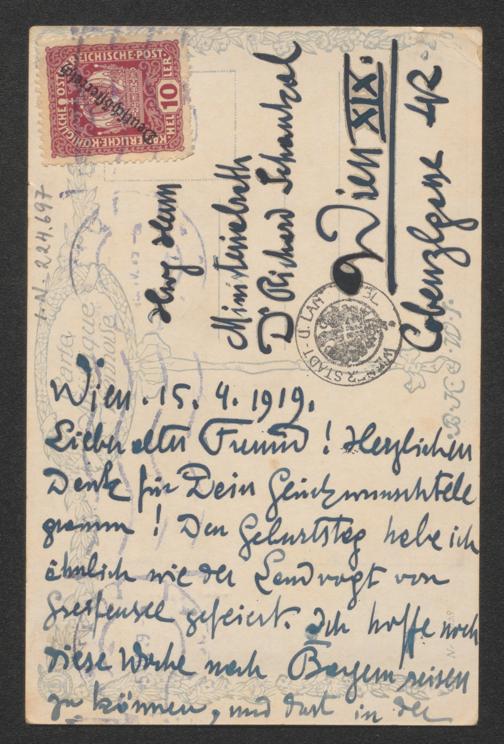 KAISERLICHE KÖNIGLICHE ÖSTERREICHISCHE POST
10
HELLER
Deutschösterreich
I.N. 224.697
Herrn
Ministerialrath
Dr Richard Schaukal
Wien XIX.
Cobenzlgasse 42
WIENER STADT- U. LANDESBIBL
B.K.W.I.
Wien. 15. 4. 1919.
Lieber alter Freund! Herzlichen
Dank für Dein Glückwunschtele
gramm! Den Geburtstag habe ich
ähnlich wie der Landvogt von
Greifensee gefeiert. Ich hoffe noch
diese Woche nach Bayern reisen
zu können, und dort in der